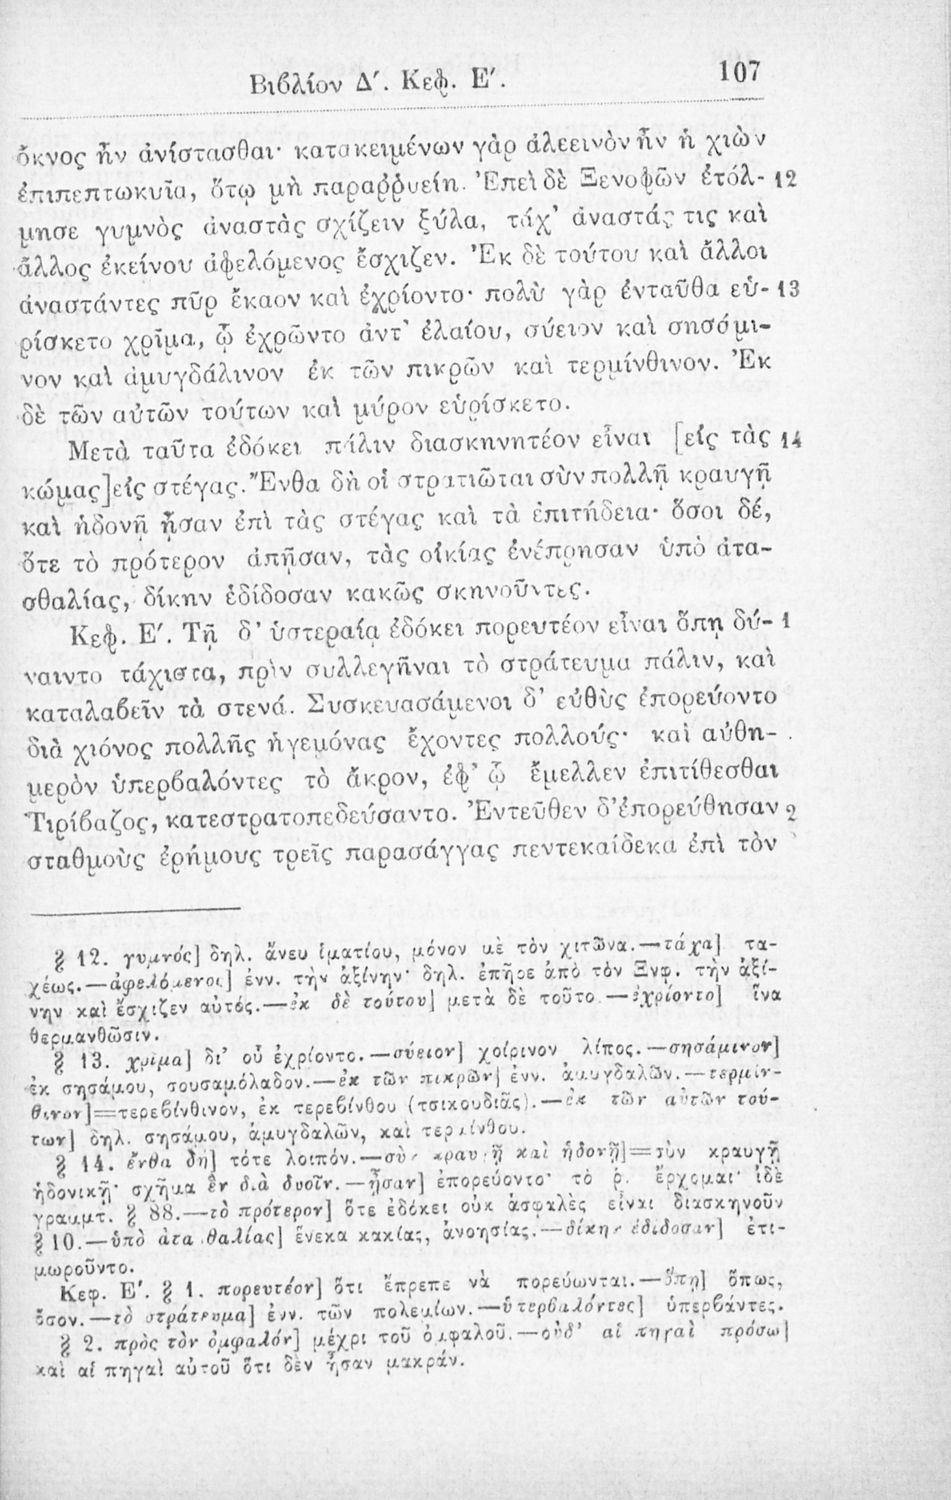 Βιβλίον Δ΄. Κεφ. Ε΄. 107
ὄκνος ἦν ἀνίστασθαι· κατακειμένων γὰρ ἀλεεινὸν ἦν ἡ χιὼν
ἐπιπεπτωκυῖα, ὅτῳ μὴ παραῤῥυείη. Ἐπεὶ δὲ Ξενοφῶν ἐτόλ- 12
μησε γυμνὸς ἀναστὰς σχίζειν ξύλα, τάχ’ ἀναστάς τις καὶ
ἄλλος ἐκείνου ἀφελόμενος ἔσχιζεν. Ἐκ δὲ τούτου καὶ ἄλλοι
ἀναστάντες πῦρ ἔκαον καὶ ἐχρίοντο· πολὺ γὰρ ἐνταῦθα εὑ- 13
ρίσκετο χρῖμα, ᾧ ἐχρῶντο ἀντ’ ἐλαίου, σύειον καὶ σησάμι-
νον καὶ ἀμυγδάλινον ἐκ τῶν πικρῶν καὶ τερμίνθινον. Ἐκ
δὲ τῶν αὐτῶν τούτων καὶ μύρον εὑρίσκετο.
Μετὰ ταῦτα ἐδόκει πάλιν διασκηνητέον εἶναι [εἰς τὰς 14
κώμας] εἰς στέγας. Ἔνθα δὴ οἱ στρατιῶται σὺν πολλῇ κραυγῇ
καὶ ἡδονῇ ᾖσαν ἐπὶ τὰς στέγας καὶ τὰ ἐπιτήδεια· ὅσοι δέ,
ὅτε τὸ πρότερον ἀπῇσαν, τὰς οἰκίας ἐνέπρησαν ὑπὸ ἀτα-
σθαλίας, δίκην ἐδίδοσαν κακῶς σκηνοῦντες.
Κεφ. Ε΄. Τῇ δ’ ὑστεραίᾳ ἐδόκει πορευτέον εἶναι ὅπῃ δύ- 1
ναιντο τάχιστα, πρὶν συλλεγῆναι τὸ στράτευμα πάλιν, καὶ
καταλαβεῖν τὰ στενά. Συσκευασάμενοι δ’ εὐθὺς ἐπορεύοντο
διὰ χιόνος πολλῆς ἡγεμόνας ἔχοντες πολλούς· καὶ αὐθη-
μερὸν ὑπερβαλόντες τὸ ἄκρον, ἐφ’ ᾧ ἔμελλεν ἐπιτίθεσθαι
Τιρίβαζος, κατεστρατοπεδεύσαντο. Ἐντεῦθεν δ’ ἐπορεύθησαν 2
σταθμοὺς ἐρήμους τρεῖς παρασάγγας πεντεκαίδεκα ἐπὶ τὸν
§ 12. γυμνός] δηλ. ἄνευ ἱματίου, μόνον μὲ τὸν χιτῶνα.—τάχα] τα-
χέως.—ἀφελόμενος] ἐνν. τὴν ἀξίνην· δηλ. ἐπῆρε ἀπὸ τὸν Ξνφ. τὴν ἀξί-
νην καὶ ἔσχιζεν αὐτός.—ἐκ δὲ τούτου] μετὰ δὲ τοῦτο.—ἐχρίοντο] ἵνα
θερμανθῶσιν.
§ 13. χρῖμα] δι’ οὗ ἐχρίοντο.—σύειον] χοίρινον λίπος.—σησάμινον]
ἐκ σησάμου, σουσαμόλαδον.—ἐκ τῶν πικρῶν] ἐνν. ἀμυγδαλῶν.—τερμίν-
θινον]=τερεβίνθινον, ἐκ τερεβίνθου (τσικουδιᾶς).—ἐκ τῶν αὐτῶν τού-
των] δηλ. σησάμου, ἀμυγδαλῶν, καὶ τερμίνθου.
§ 14. ἔνθα δὴ] τότε λοιπόν.—σὺν κραυγῇ καὶ ἡδονῇ]=σὺν κραυγῇ
ἡδονικῇ· σχῆμα ἓν διὰ δυοῖν.—ᾖσαν] ἐπορεύοντο· τὸ ῥ. ἔρχομαι· ἰδὲ
γραμμτ. § 88.—τὸ πρότερον] ὅτε ἐδόκει οὐκ ἀσφαλὲς εἶναι διασκηνοῦν
§ 10.—ὑπὸ ἀτασθαλίας] ἕνεκα κακίας, ἀνοησίας.—δίκην ἐδίδοσαν] ἐτι-
μωροῦντο.
Κεφ. Ε΄. § 1. πορευτέον] ὅτι ἔπρεπε νὰ πορεύωνται.—ὅπῃ] ὅπως,
ὅσον.—τὸ στράτευμα] ἐνν. τῶν πολεμίων.—ὑπερβαλόντες] ὑπερβάντες.
§ 2. πρὸς τὸν ὀμφαλόν] μέχρι τοῦ ὀμφαλοῦ.—οὐδ’ αἱ πηγαὶ πρόσω]
καὶ αἱ πηγαὶ αὐτοῦ ὅτι δὲν ἦσαν μακράν.